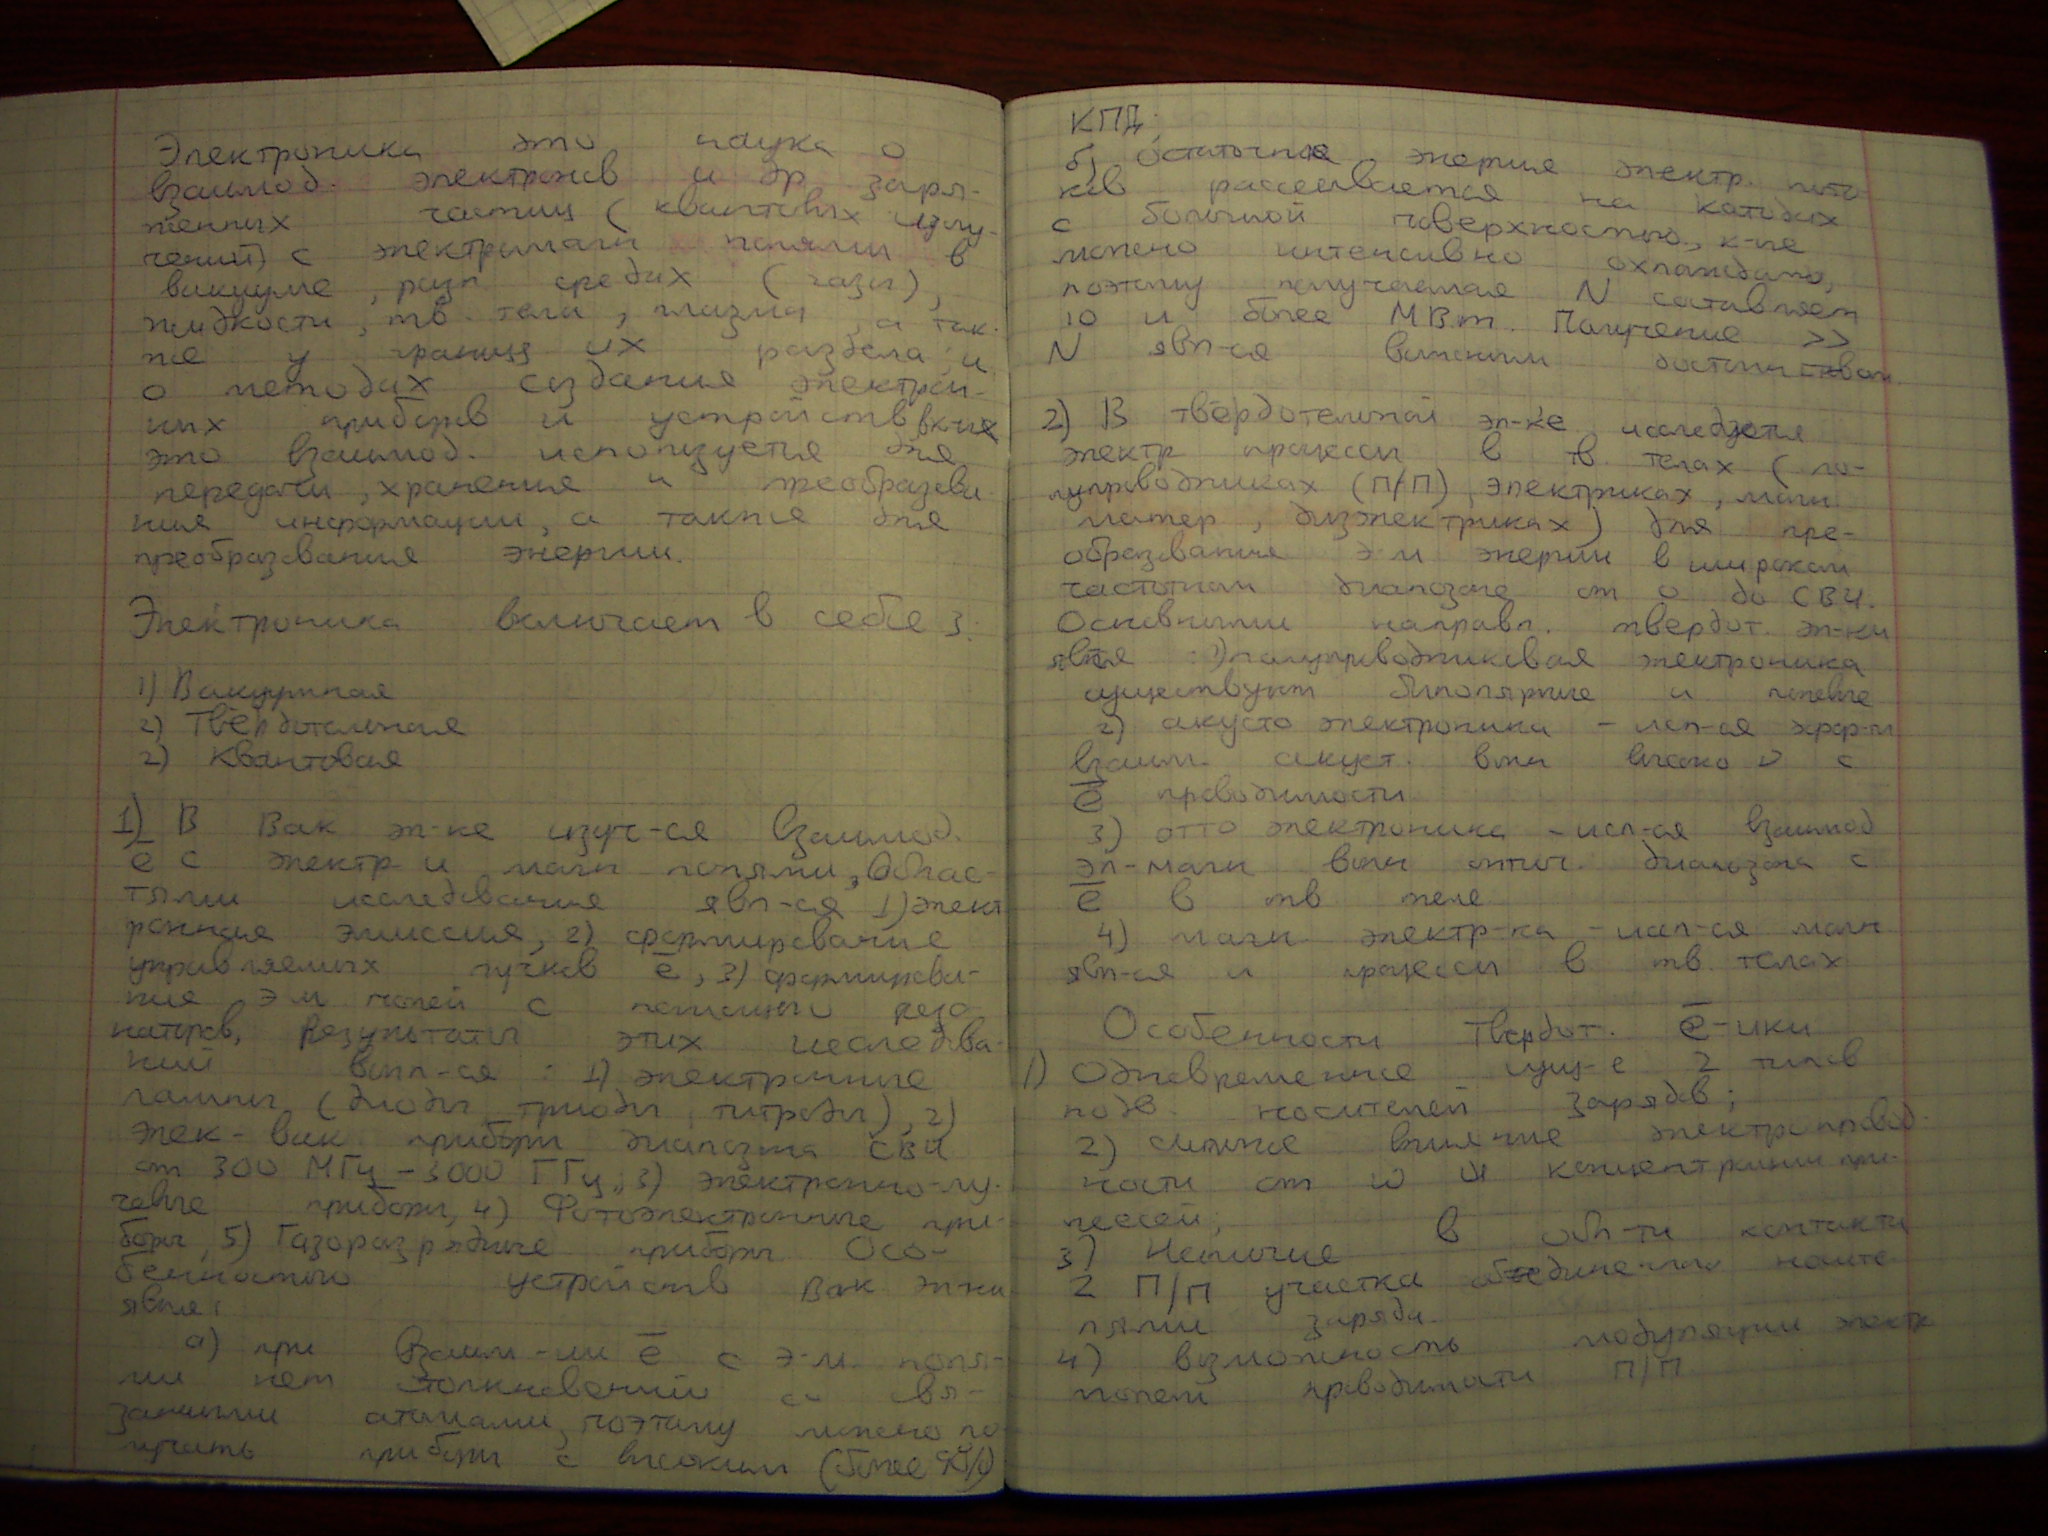 Электроника это наука о
взаимод. электронов и др заря-
женных частиц (квантовых излу-
чений) с электромагн полями в
вакууме, разл средах (газы),
жидкости, тв. тела, плазма, а так-
же у границ их раздела и
о методах создания электрон-
ных приборов и устройств в к-ых
это взаимод. используется для
передачи, хранения и преобразова-
ния информации, а также для
преобразования энергии.
Электроника включает в себе 3:
1) Вакуумная
2) Твёрдотельная
2) Квантовая
1) В Вак эл-ке изуч-ся взаимод.
ē с электр и магн полями, Облас-
тями исследования явл-ся 1) элект
ронная эмиссия, 2) формирование
управляемых пучков ē, 3) формирова-
ние э м полей с помощью резо
наторов, Результаты этих исследова-
ний явл-ся : 1) электронные
лампы (диоды, триоды, титроды), 2)
элек-вак. приборы диапазона СВЧ
от 300 МГц - 3000 ГГц, 3) электронно-лу-
чевые приборы, 4) Фотоэлектронные при-
боры, 5) Газоразрядные приборы Осо-
бенностью устройств вак эл-ки
явл-ся:
а) при взаим-ии ē с э-м. поля-
ми нет столкновений с свя-
занными атомами, поэтому можно по
лучить приборы с высоким (более %)
КПД;
б) Остаточная энергия электр. пото
ков рассеивается на катодах
с большой поверхностью, к-ые
можно интенсивно охлаждать,
поэтому получаемая N составляет
10 и более МВт. Получение >>
N явл-ся важным достоинством
2) В твёрдотельной эл-ке исследуются
электр процессы в тв. телах (по-
лупроводниках (П/П), электриках, магн
матер, диэлектриках) для пре-
образования э м энергии в широком
частотном диапазоне от 0 до СВЧ.
Основными направл. твердот. эл-ки
явл-ся : 1) полупроводниковая электроника
существуют биполярные и полевые
2) акусто электроника - исп-ся эфф-ы
взаим. акуст. волн высоко ν с
ē проводимости
3) опто электроника - исп-ся взаимод
эл-магн волн оптич. диапазона с
ē в тв теле
4) магн. электр-ка - исп-ся магн
явл-ся и процессы в тв. телах
Особенности Твердот. ē-ики
1) Одновременное сущ-е 2 типов
подв. носителей зарядов;
2) сильное влияние электропровод-
ности от и концентрации при-
месей;
3) Наличие в обл-ти контакта
2 П/П участка обеднённого носите
лями заряда.
4) возможность модуляции электр
полем проводимости П/П